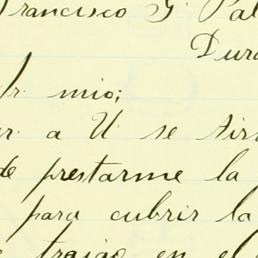 Francisco G. Pal
Dura
Sr. mio;
a U se sirv
de prestarme la
para cubrir la
traigo en el